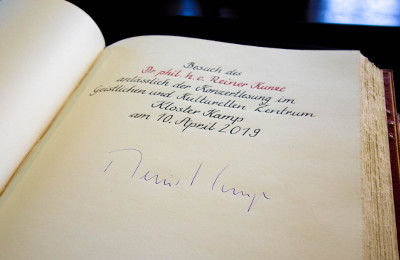 Besuch des
Dr. phil. h. c. Reiner Kunze
anlässlich der Konzertlesung im
Geistlichen und Kulturellen Zentrum
Kloster Kamp
am 10. April 2019